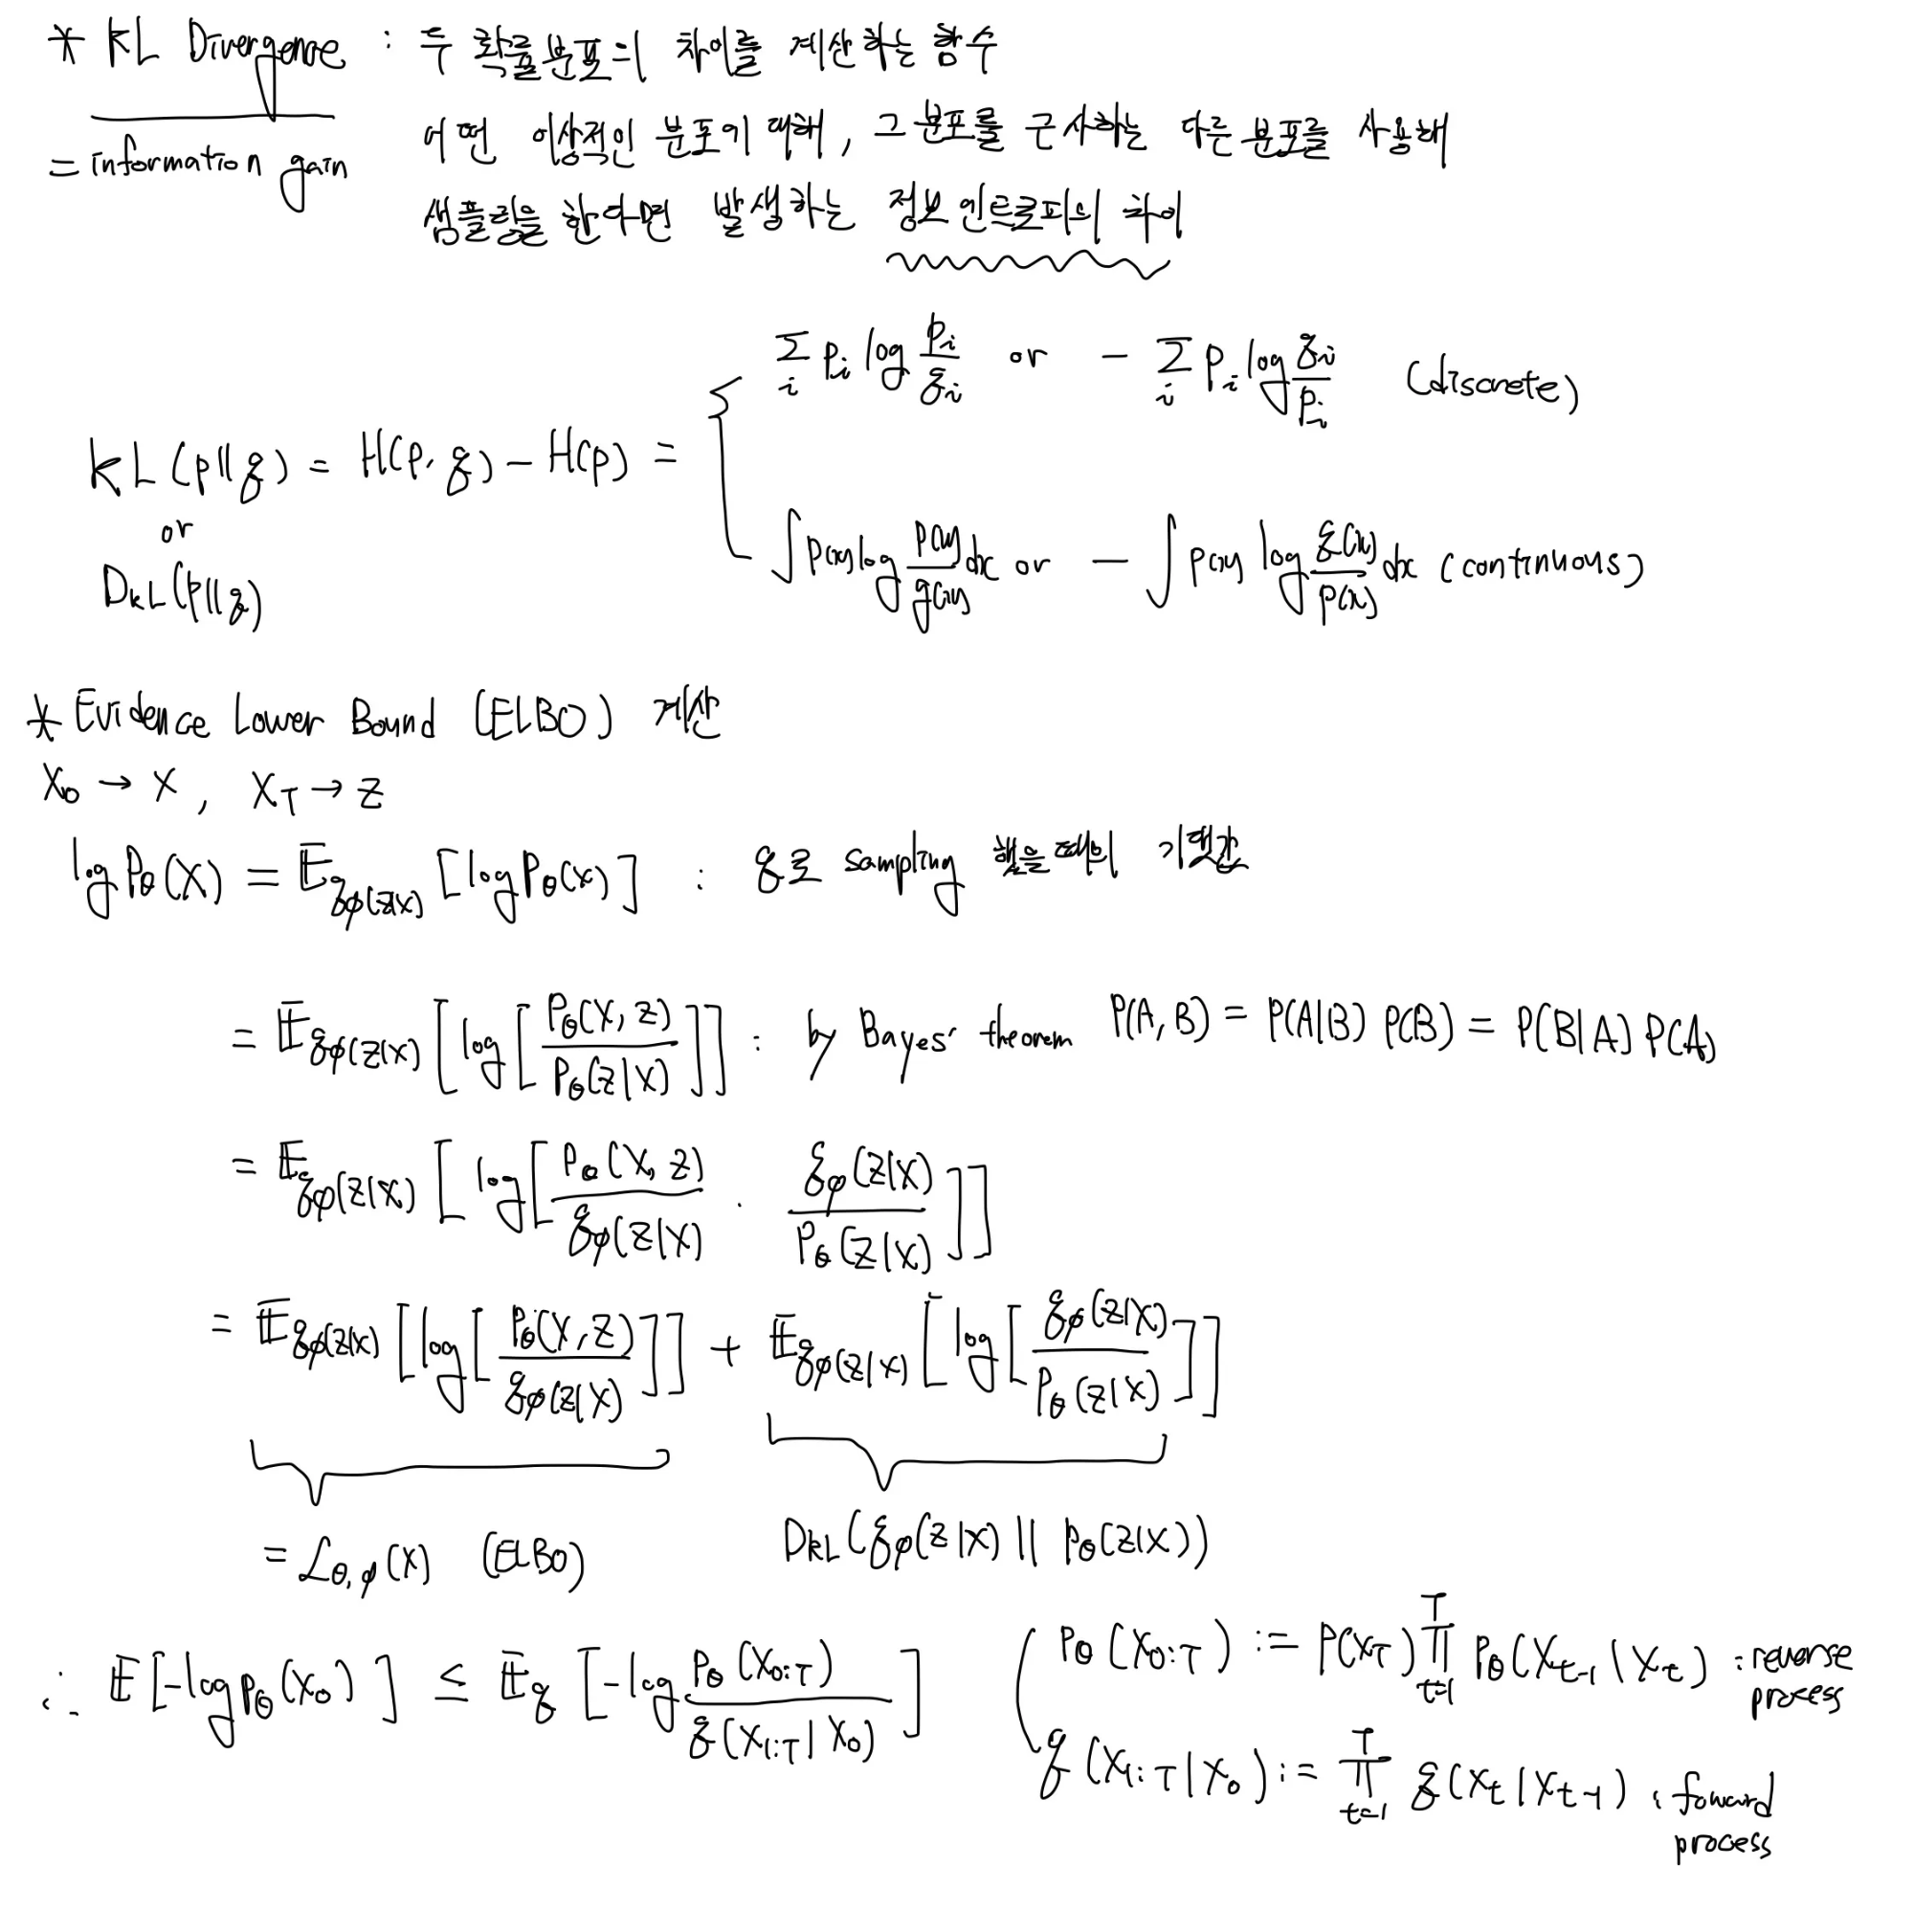 * KL Divergence : 두 확률분포의 차이를 계산하는 함수
= information gain
어떤 이상적인 분포에 대해, 그 분포를 근사하는 다른 분포를 사용해
샘플링을 한다면 발생하는 정보 엔트로피의 차이
∑_i p_i log p_i/q_i or - ∑_i p_i log q_i/p_i (discrete)
KL(p||q) = H(p, q) - H(p) =
or
D_KL(p||q)
∫p(x)log p(x)/q(x) dx or - ∫p(x) log q(x)/p(x) dx (continuous)
* Evidence Lower Bound (ELBO) 계산
X_0 → X, X_T → Z
log P_θ(X) = E_qφ(z|x) [log P_θ(x)] : q로 sampling 했을때의 기댓값
= E_qφ(z|x) [log[P_θ(X, z)/P_θ(z|X)]] : by Bayes' theorem P(A, B) = P(A|B) P(B) = P(B|A) P(A)
= E_qφ(z|x) [log[P_θ(X, z)/q_φ(z|X) · q_φ(z|X)/P_θ(z|X)]]
= E_qφ(z|x) [log[P_θ(X, z)/q_φ(z|X)]] + E_qφ(z|x) [log[q_φ(z|X)/P_θ(z|X)]]
= L_θ,φ(X) (ELBO) D_KL(q_φ(z|X) || p_θ(z|X))
∴ E[-log p_θ(X_0)] ≤ E_q [-log P_θ(X_0:T)/q(X_1:T|X_0)]
P_θ(X_0:T) := P(X_T) ∏_t=1^T P_θ(X_t-1|X_t) : reverse process
q(X_1:T|X_0) := ∏_t=1^T q(X_t|X_t-1) : foward process